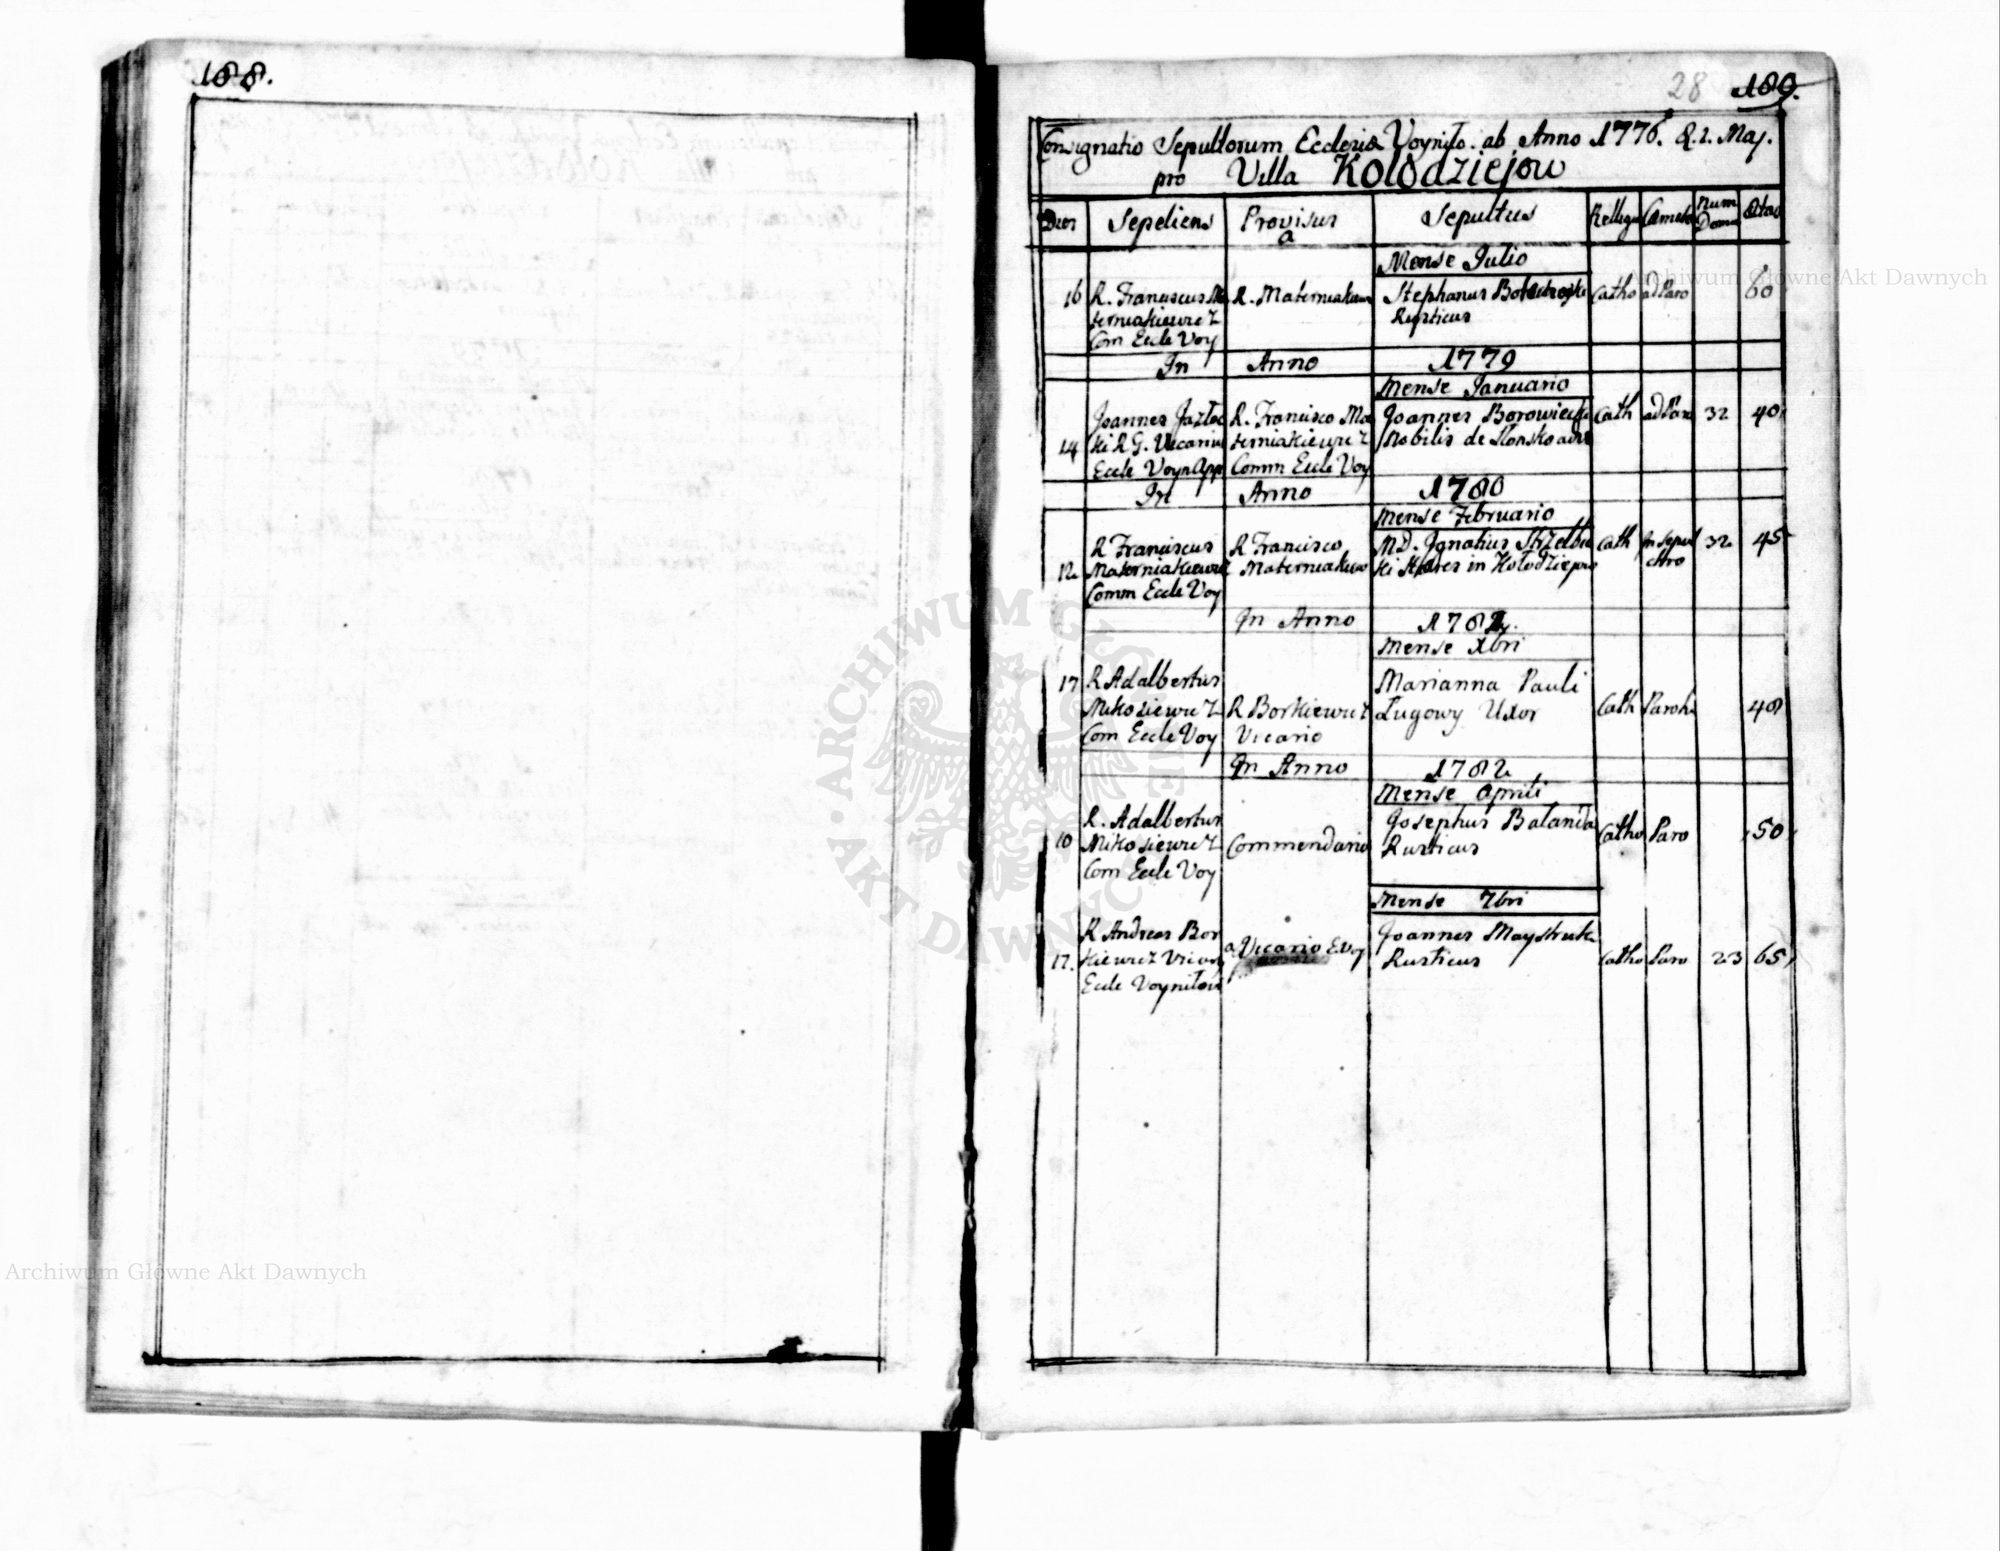 188.
28 189.
Consignatio Sepultorum Ecclesiæ Voynito. ab Anno 1776. d. 2. Maj.
pro Villa Kołodziejow
Dies Sepeliens Provisus a Sepultus Religio Cæmet Num Domus Ætas
Mense Julio
16 R. Franciscus Ma R. Materniakiew Stephanus Catho ad Paro 60
terniakiewicz Rusticus
Com Eccle Voy
In Anno 1779
Mense Januario
Joannes Jazło R. Francisco Ma Joannes Borowiecki Cath ad Paro 32 40
14 ki R G. Vicarius terniakiewicz Nobilis de
Eccle Voyn App Comm Eccle Voy
In Anno 1780
Mense Februario
R Franciscus R Francisco M D. Ignatius Strzelbic Cath in sepul 32 45
12 Materniakiewicz Materniakiew ki Hæres in Kołodziejow chro
Comm Eccle Voy
In Anno
Mense Xbri
17 R Adalbertus Marianna Pauli
Mikosiewicz R Borkiewicz Ługowy Uxor Cath Paroh 48
Com Eccle Voy Vicario
In Anno 1782
Mense Aprili
R. Adalbertus Josephus Balanda
10 Mikosiewicz Commendario Rusticus Catho Paro 50
Com Eccle Voy
Mense 7bri
R Andreas Bor Joannes Maystruk
12. kiewicz Vicary a Vicario E Voy Rusticus Catho Paro 23 65
Eccle Voyniłow
ARCHIWUM GŁÓWNE AKT DAWNYCH
Archiwum Główne Akt Dawnych
Archiwum Główne Akt Dawnych